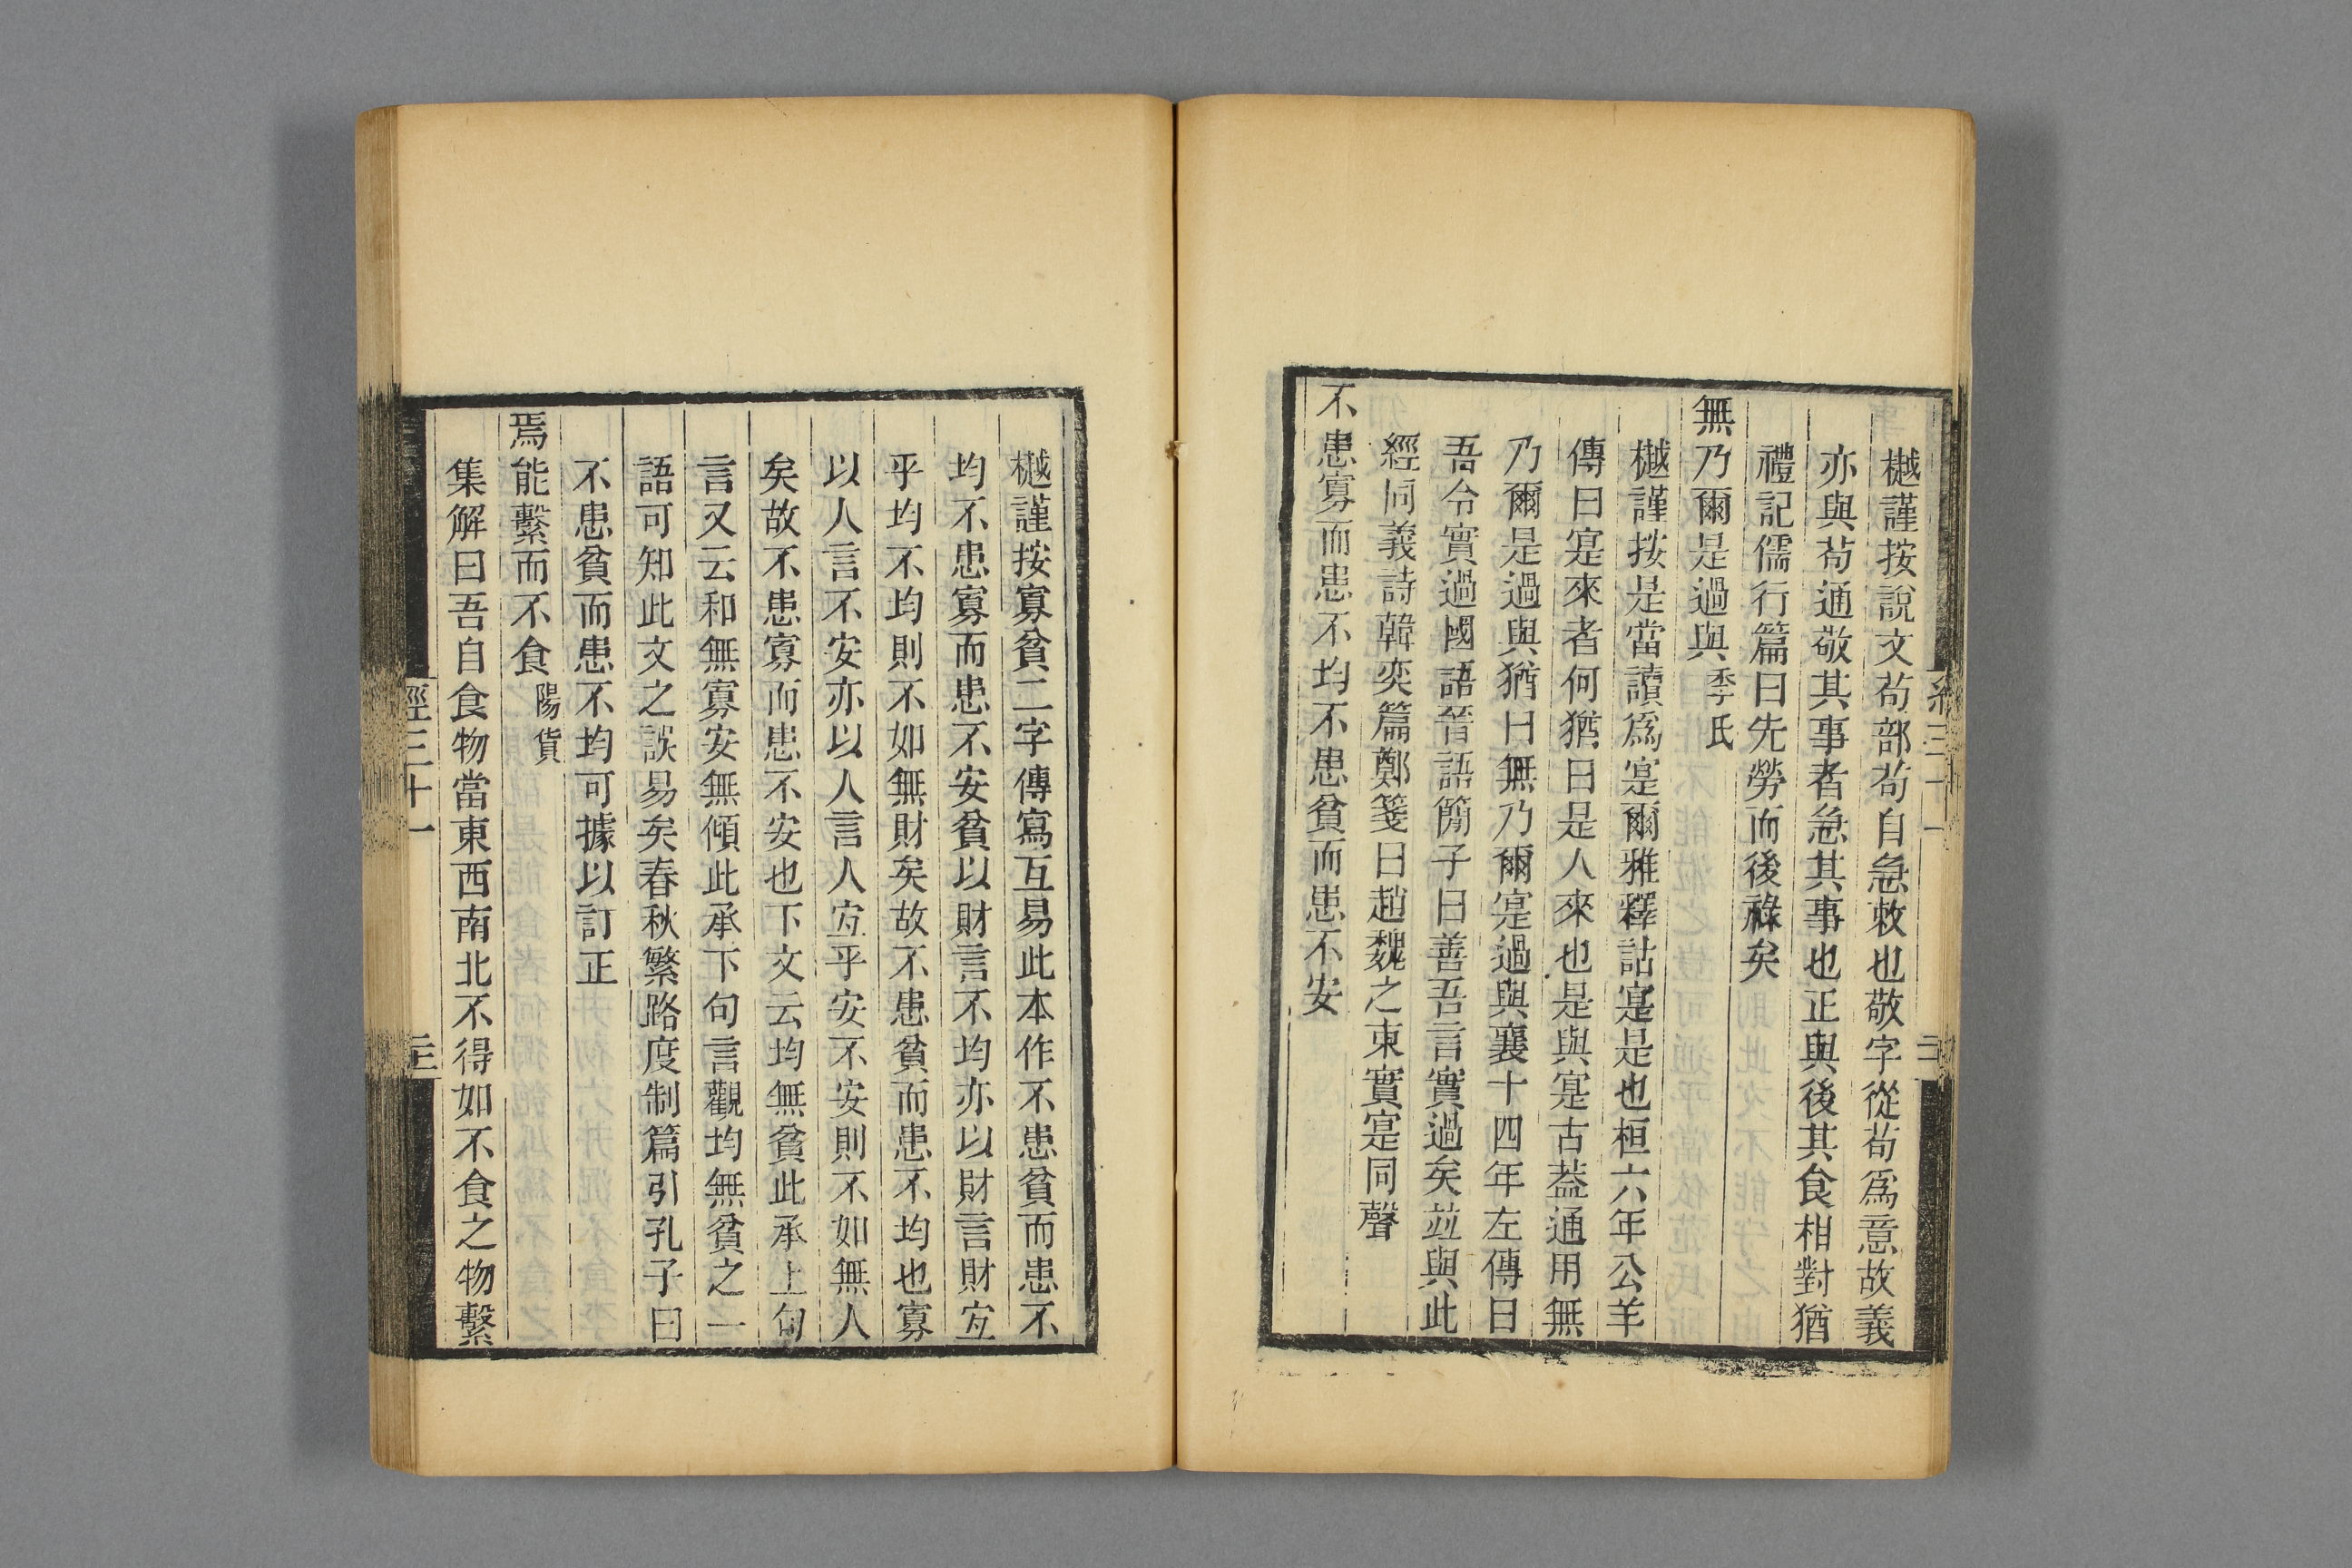 樾謹按說文茍部茍自急敕也敬字從茍爲意故義
亦與茍通敬其事者急其事也正與後其食相對猶
禮記儒行篇曰先勞而後祿矣
無乃爾是過與季氏
樾謹按是當讀爲寔爾雅釋詁寔是也桓六年公羊
傳曰寔來者何猶曰是人來也是與寔古葢通用無
乃爾是過與猶曰無乃爾寔過與襄十四年左傳曰
吾令實過國語晉語簡子曰善吾言實過矣竝與此
經同義詩韓奕篇鄭箋曰趙魏之東實寔同聲
不患寡而患不均不患貧而患不安
樾謹按寡貧二字傳寫互易此本作不患貧而患不
均不患寡而患不安貧以財言不均亦以財言財宐
乎均不均則不如無財矣故不患貧而患不均也寡
以人言不安亦以人言人宐乎安不安則不如無人
矣故不患寡而患不安也下文云均無貧此承上句
言又云和無寡安無傾此承下句言觀均無貧之一
語可知此文之誤易矣春秋繁路度制篇引孔子曰
不患貧而患不均可據以訂正
焉能繫而不食陽貨
集解曰吾自食物當東西南北不得如不食之物繫
經三十一